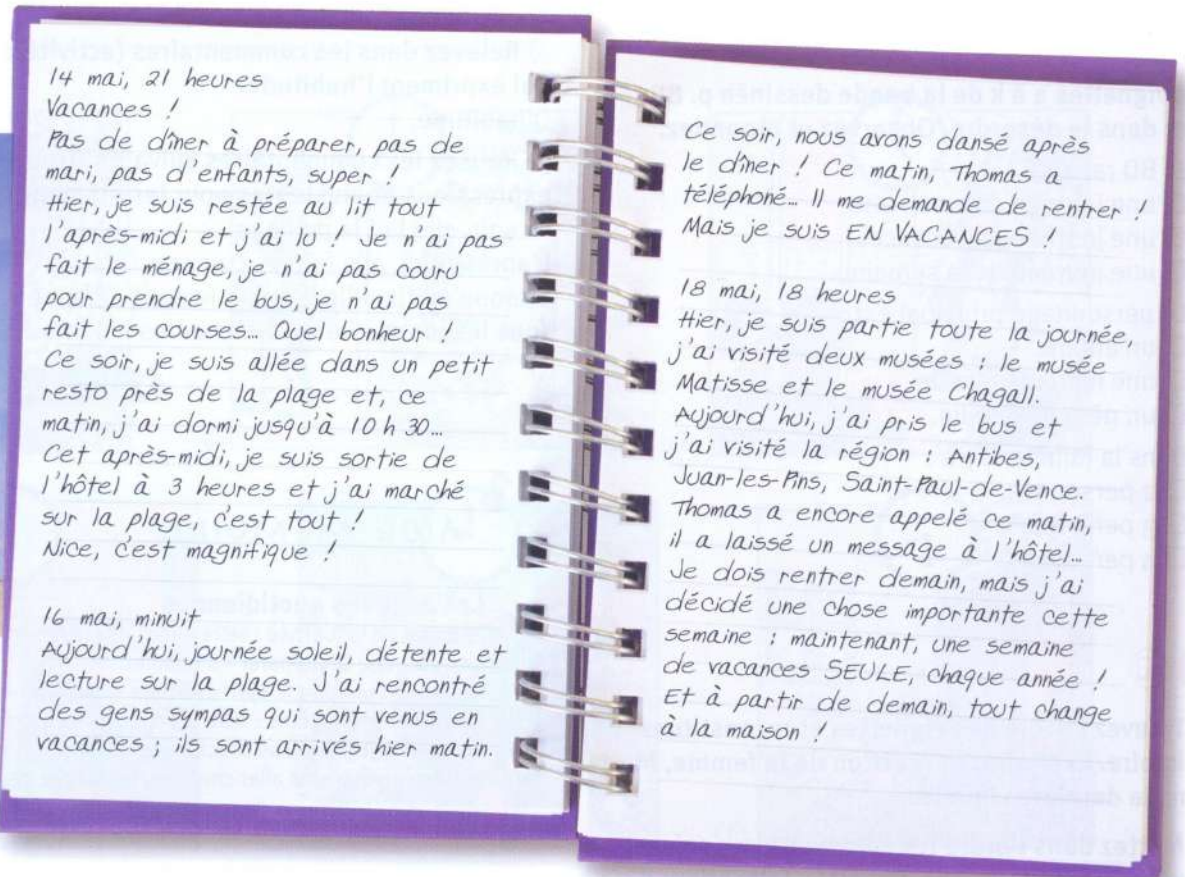 14 mai, 21 heures
Vacances !
Pas de dîner à préparer, pas de
mari, pas d'enfants, super !
Hier, je suis restée au lit tout
l'après-midi et j'ai lu ! Je n'ai pas
fait le ménage, je n'ai pas couru
pour prendre le bus, je n'ai pas
fait les courses... Quel bonheur !
Ce soir, je suis allée dans un petit
resto près de la plage et, ce
matin, j'ai dormi jusqu'à 10 h 30...
Cet après-midi, je suis sortie de
l'hôtel à 3 heures et j'ai marché
sur la plage, c'est tout !
Nice, c'est magnifique !
16 mai, minuit
Aujourd'hui, journée soleil, détente et
lecture sur la plage. J'ai rencontré
des gens sympas qui sont venus en
vacances ; ils sont arrivés hier matin.
Ce soir, nous avons dansé après
le dîner ! Ce matin, Thomas a
téléphoné... Il me demande de rentrer !
Mais je suis EN VACANCES !
18 mai, 18 heures
Hier, je suis partie toute la journée,
j'ai visité deux musées : le musée
Matisse et le musée Chagall.
Aujourd'hui, j'ai pris le bus et
j'ai visité la région : Antibes,
Juan-les-Pins, Saint-Paul-de-Vence.
Thomas a encore appelé ce matin,
il a laissé un message à l'hôtel...
Je dois rentrer demain, mais j'ai
décidé une chose importante cette
semaine : maintenant, une semaine
de vacances SEULE, chaque année !
Et à partir de demain, tout change
à la maison !